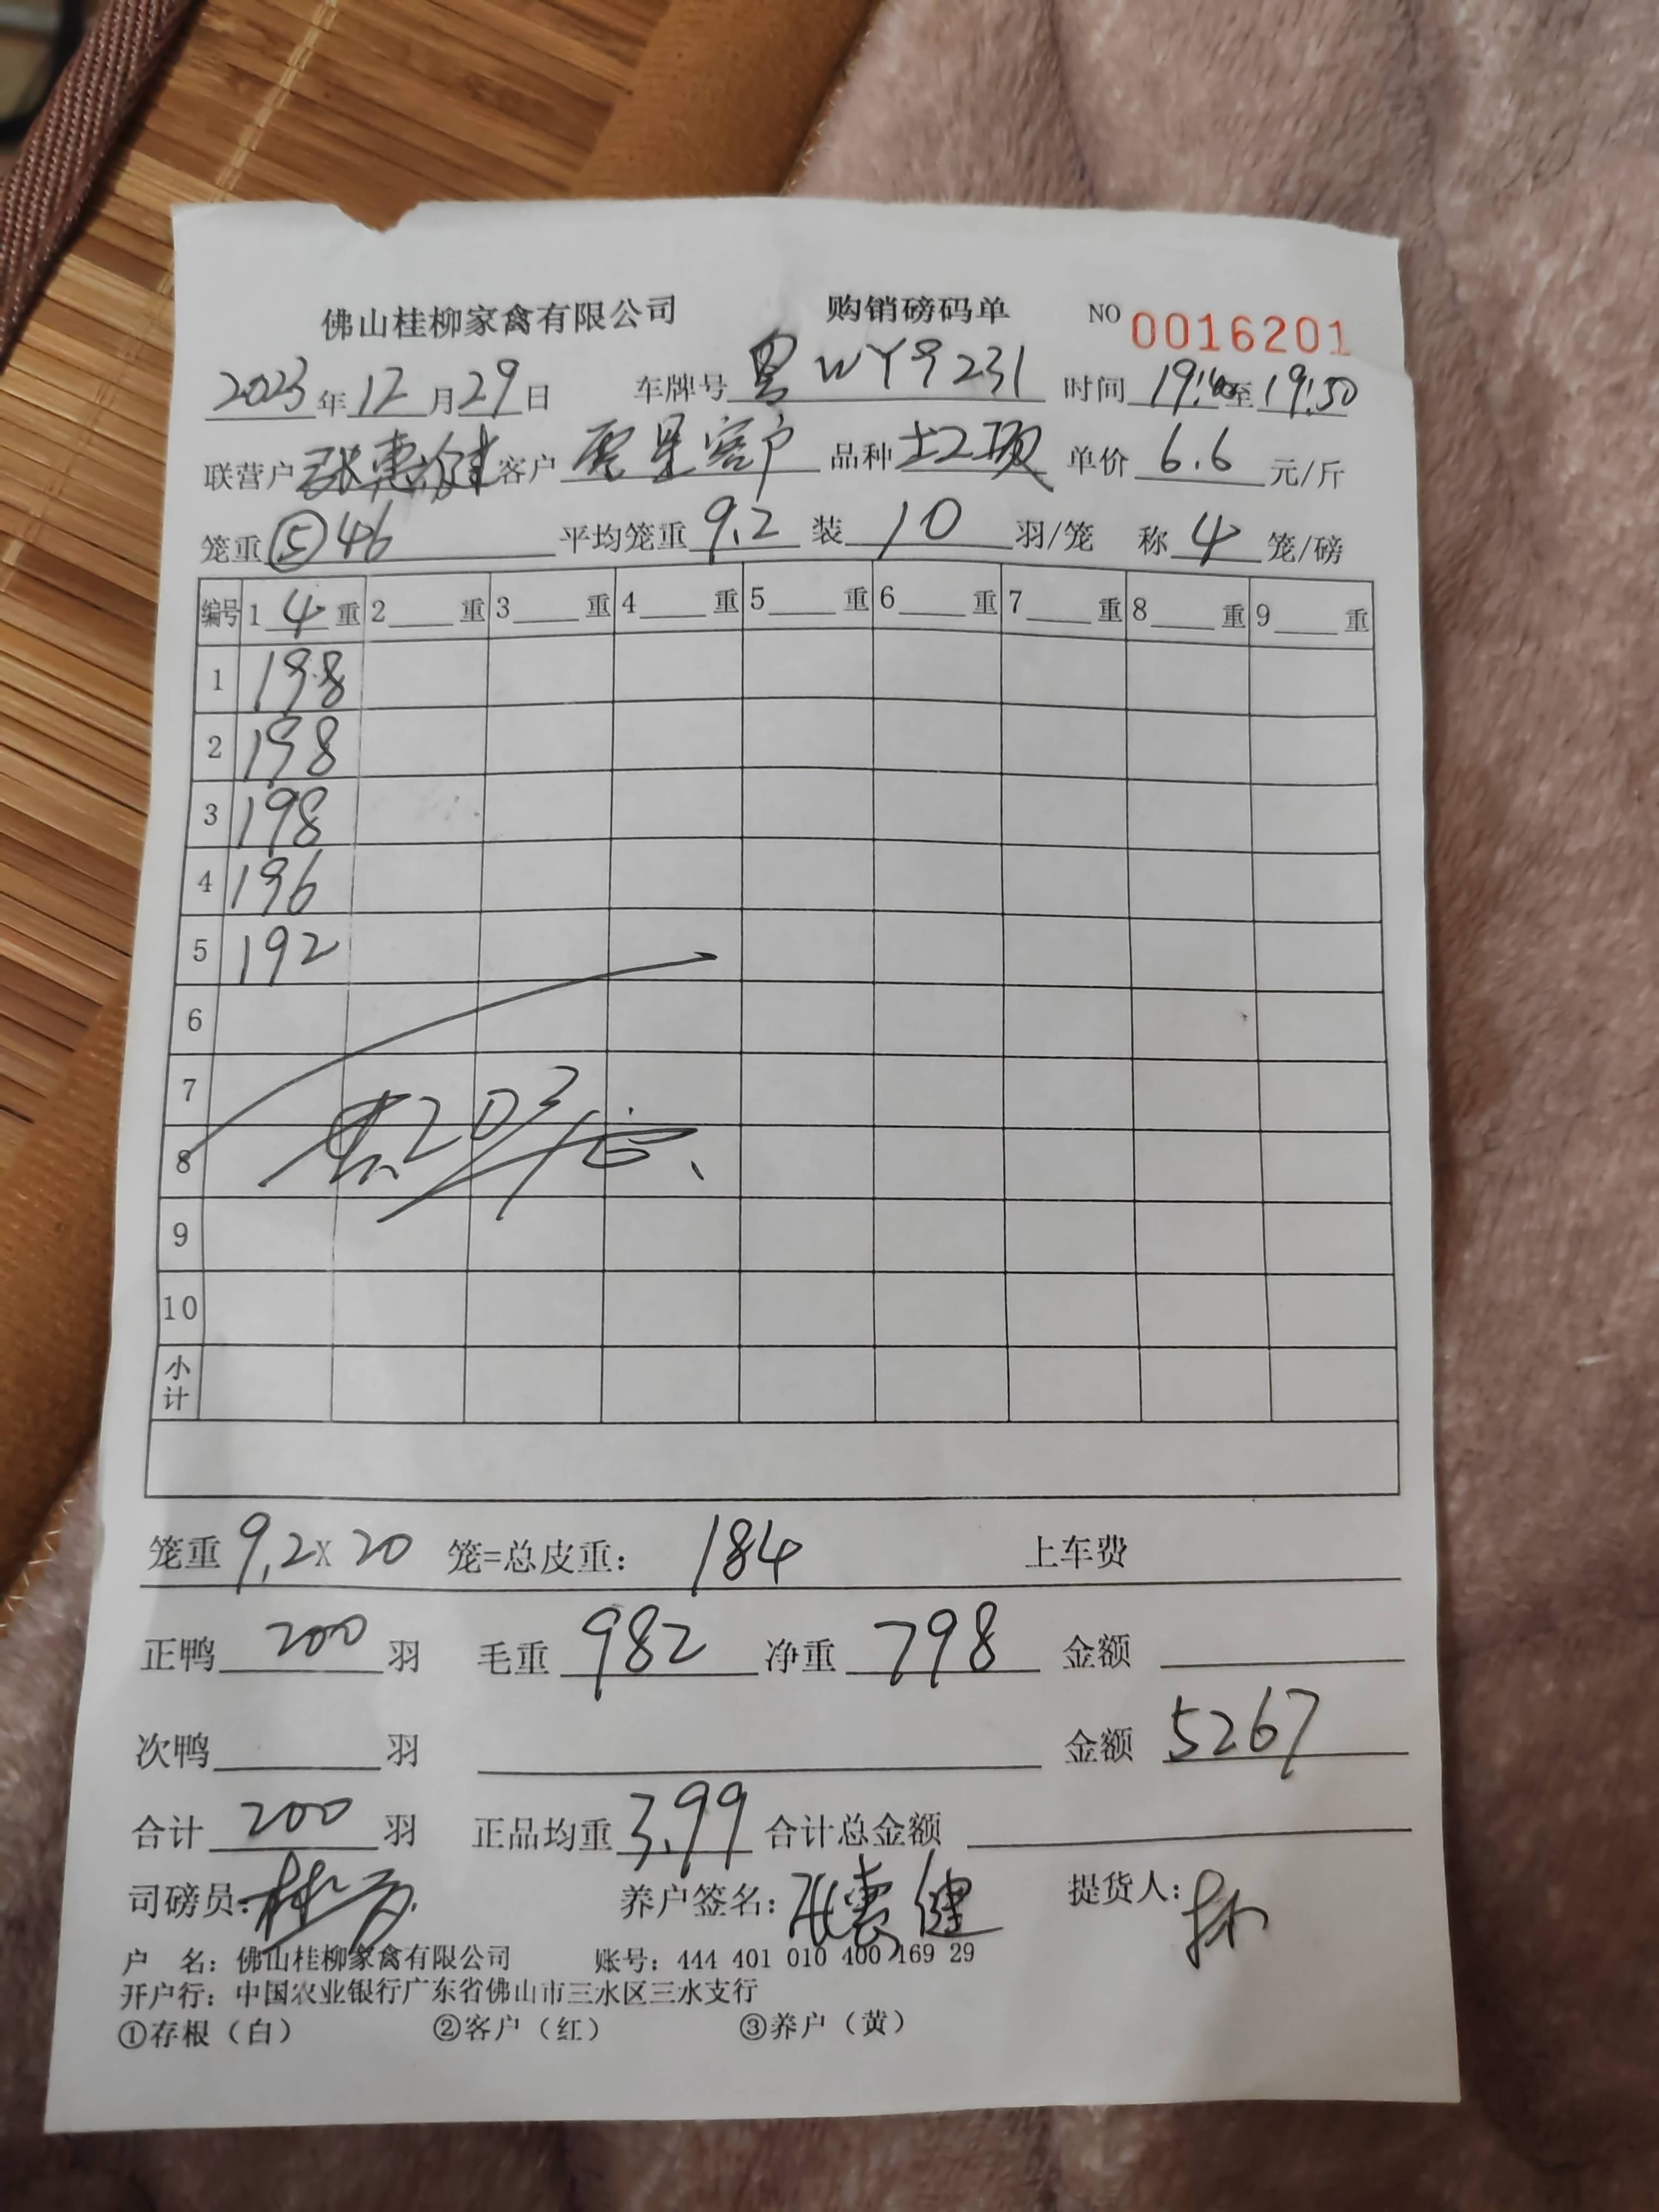 佛山桂柳家禽有限公司 购销磅码单 NO 0016201
2023年12月29日 车牌号 粤WY9231 时间 19:40至19:50
联营户 张惠健 客户 零星客户 品种 土2项 单价 6.6 元/斤
笼重 ⑤46 平均笼重 9.2 装 10 羽/笼 称 4 笼/磅
编号 1 4 重 2 重 3 重 4 重 5 重 6 重 7 重 8 重 9 重
1 198
2 198
3 198
4 196
5 192
6
7
8
9
10
小计
笼重 9.2 X 20 笼=总皮重: 184 上车费
正鸭 200 羽 毛重 982 净重 798 金额
次鸭 羽 金额 5267
合计 200 羽 正品均重 3.99 合计总金额
司磅员: 养户签名: 张惠健 提货人:
户 名: 佛山桂柳家禽有限公司 账号: 444 401 010 400 169 29
开户行: 中国农业银行广东省佛山市三水区三水支行
①存根（白） ②客户（红） ③养户（黄）